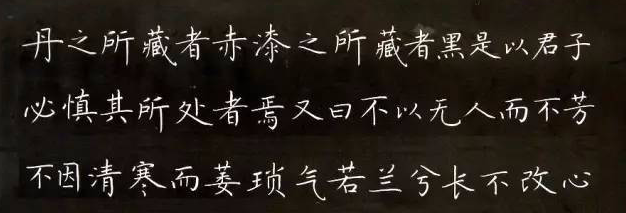 丹之所藏者赤漆之所藏者黑是以君子
必慎其所处者焉又曰不以无人而不芳
不因清寒而萎琐气若兰兮长不改心